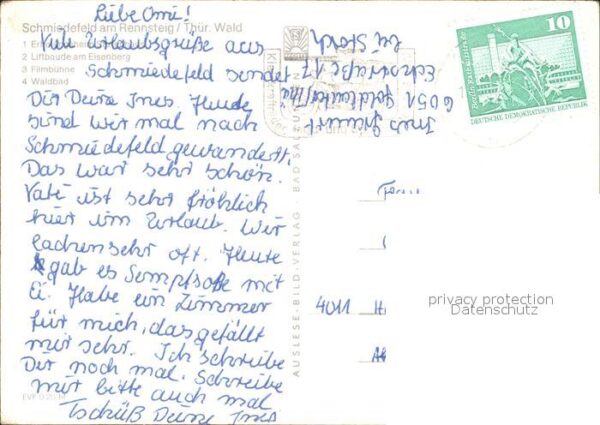 Liebe Omi!
Schmiedefeld am Rennsteig / Thür. Wald
Viele Urlaubsgrüße aus
2 Luftbaude am Eisenberg
Schmiedefeld sendet
3 Filmbühne
4 Waldbad
Dir Deine Ines. Heute
sind wir mal nach
Schmiedefeld gewandert.
Das war sehr schön.
Vati ist sehr fröhlich
hier im Urlaub. Wir
lachen sehr oft. Heute
gab es Sempfsoße mit
Ei. Habe ein Zimmer
für mich, das gefällt
mir sehr. Ich schreibe
Dir noch mal. Schreibe
mir bitte auch mal
Tschüß Deine Ines
AUSLESE-BILD-VERLAG · BAD SALZU
Ines
6051
bei Storch
10
DEUTSCHE DEMOKRATISCHE REPUBLIK
4011
privacy protection
Datenschutz